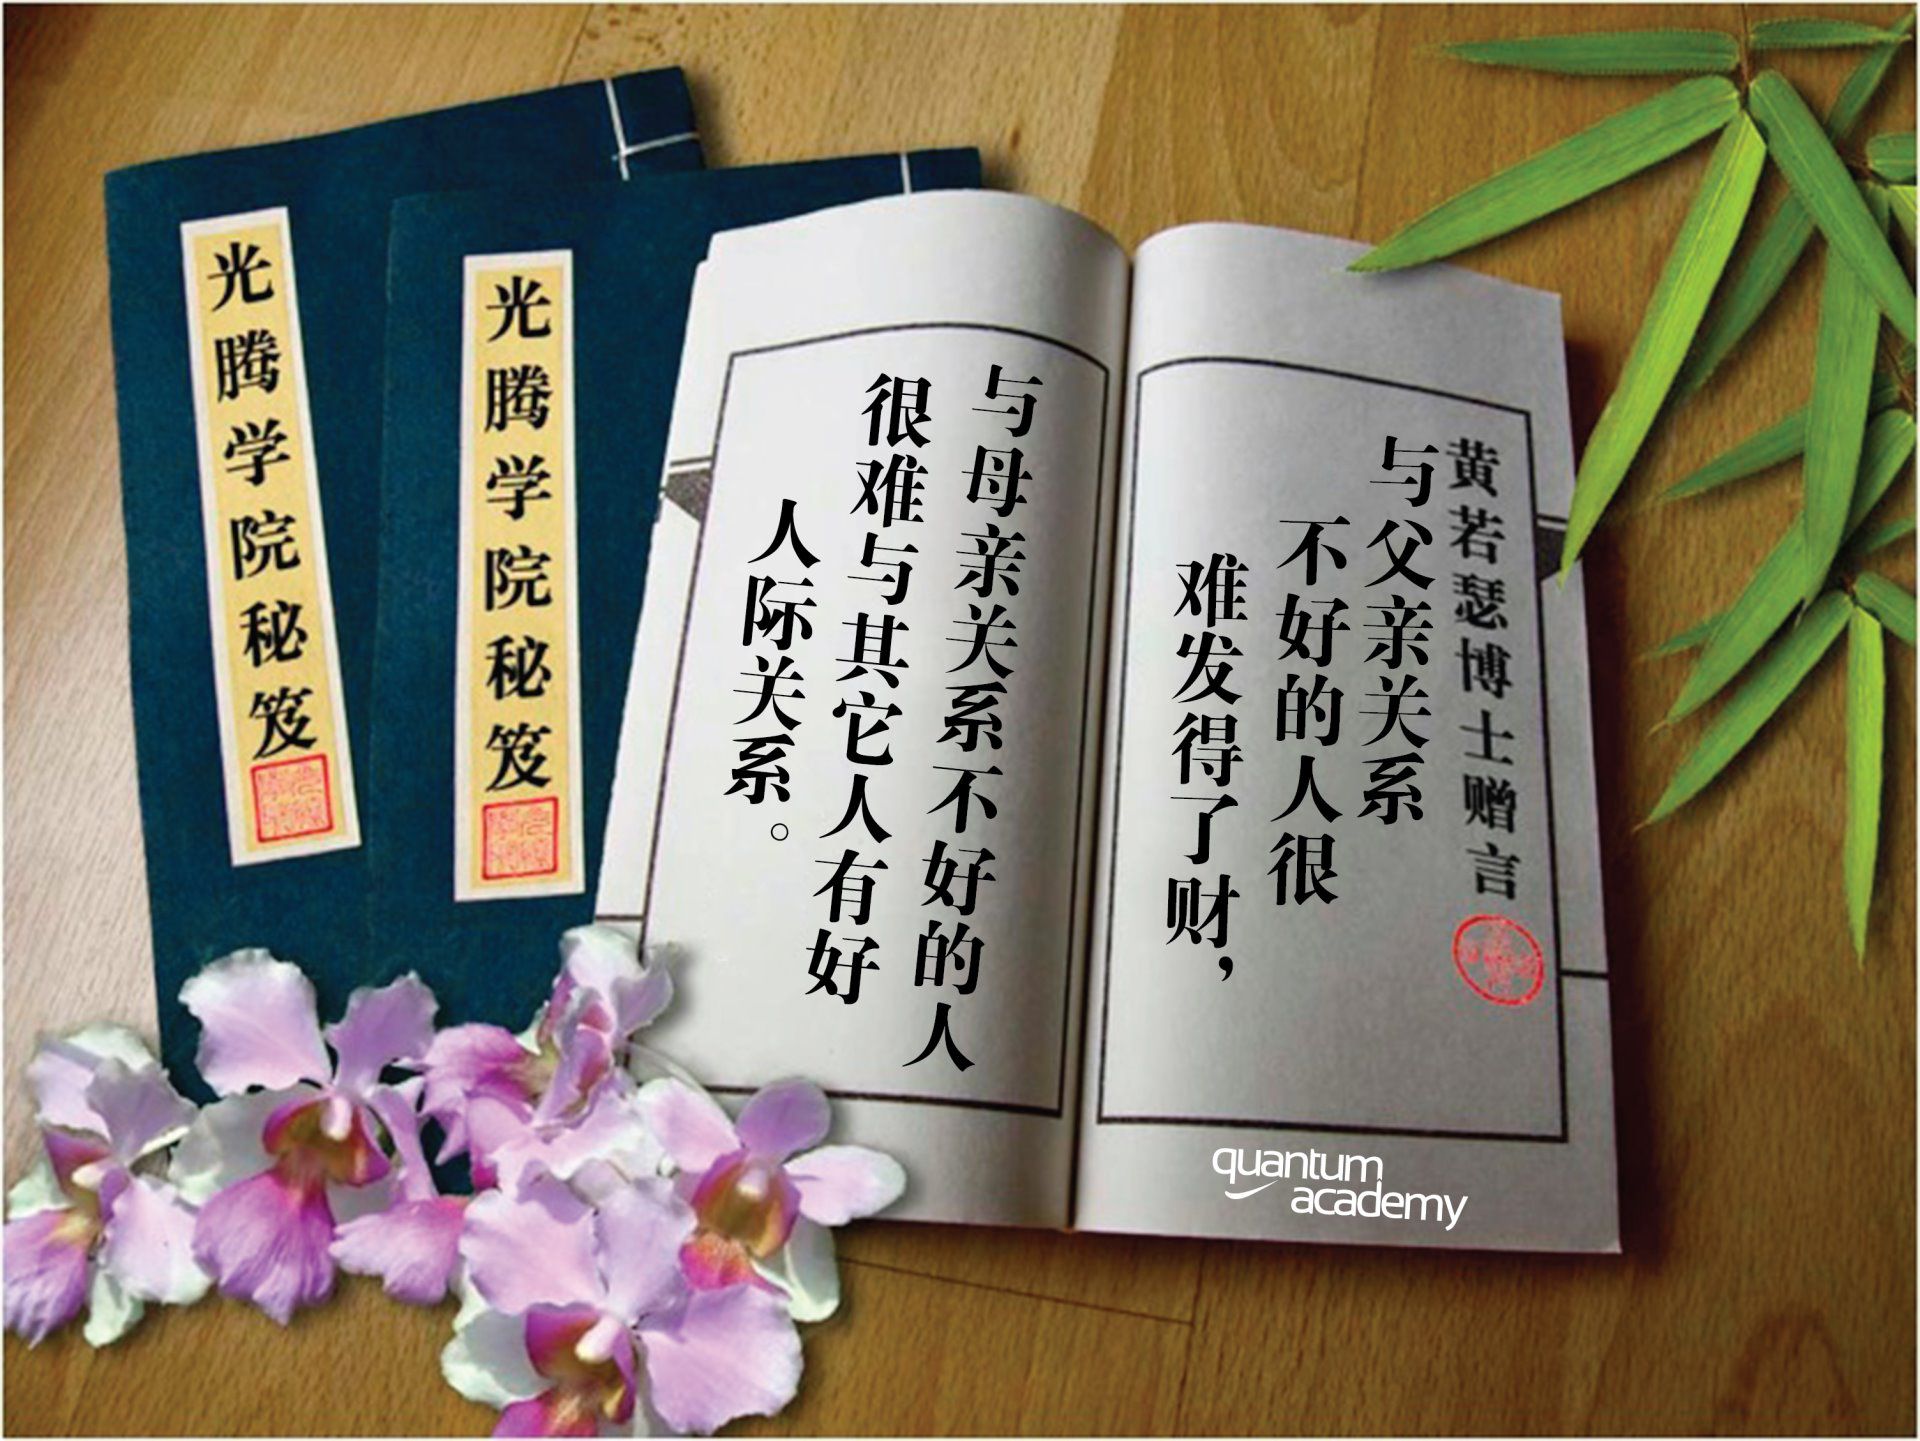 光腾学院秘笈
光腾学院秘笈
黄若瑟博士赠言
与父亲关系
不好的人很
难发得了财，
与母亲关系不好的人
很难与其它人有好
人际关系。
quantum
academy